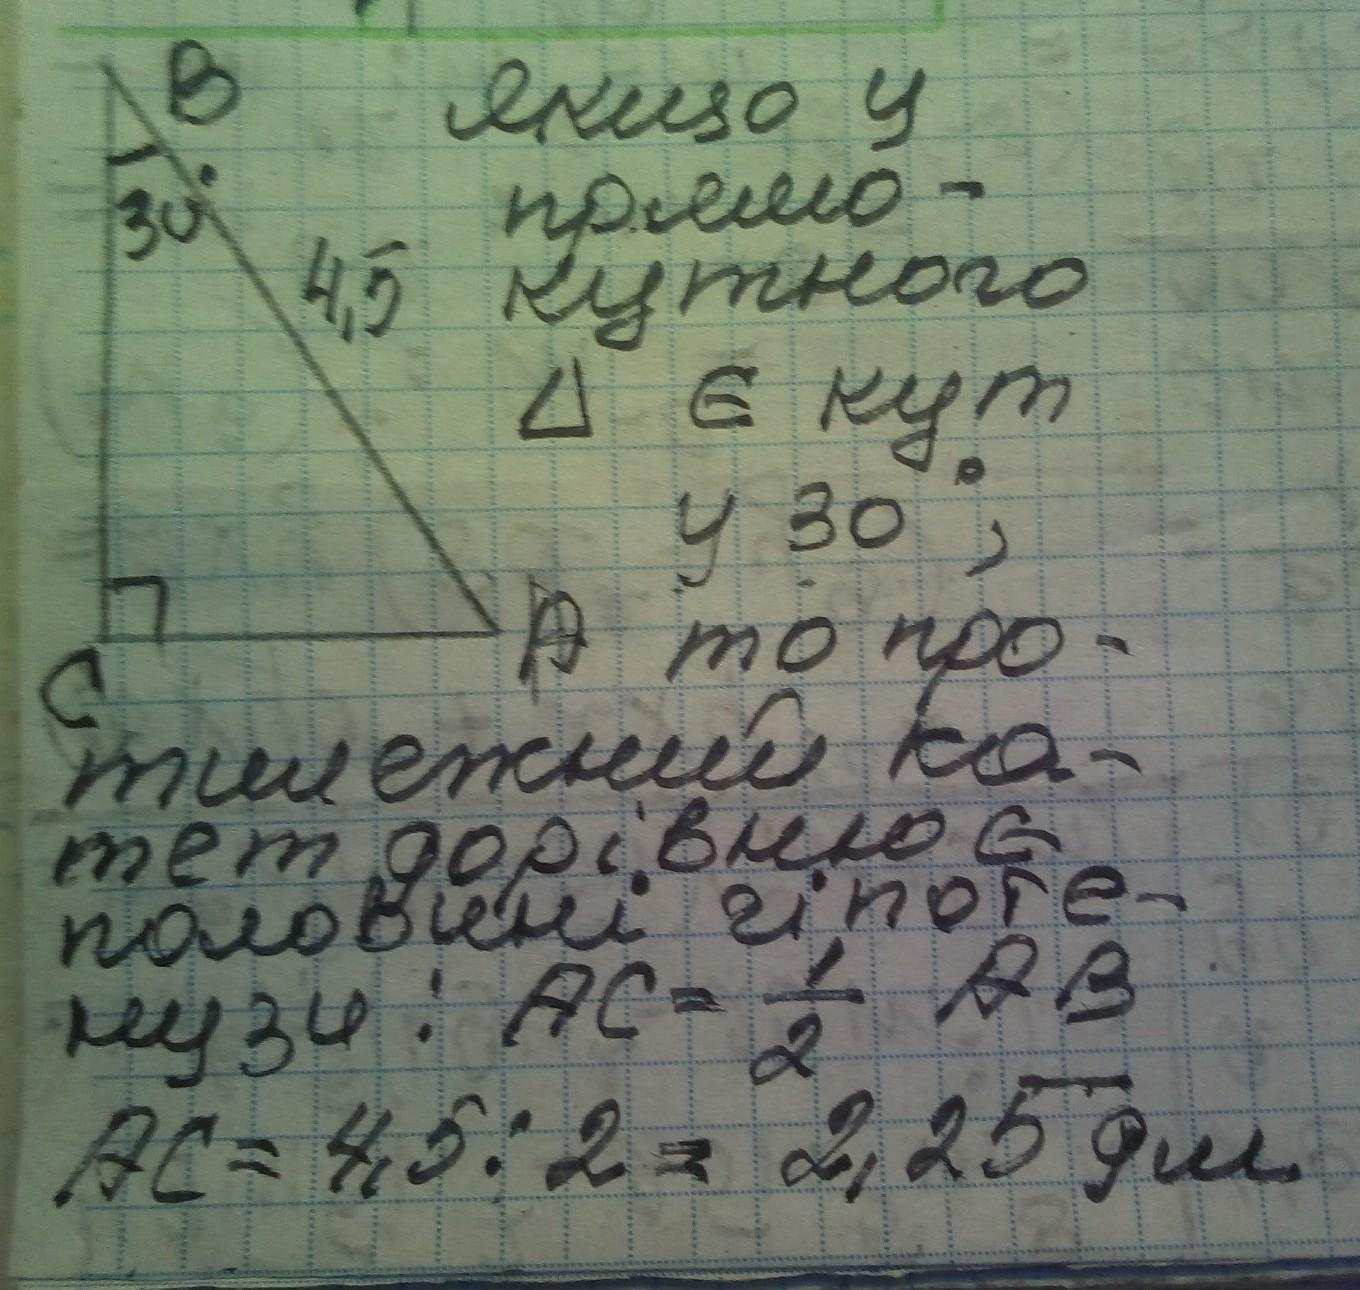 B
Якщо у
прямо-
30°
4,5
кутного
Δ є кут
у 30°,
A
то про-
C
тилежний ка-
тет дорівнює
половині гіпоте-
нузи: AC = 1/2 AB
AC = 4,5 : 2 = 2,25 дм